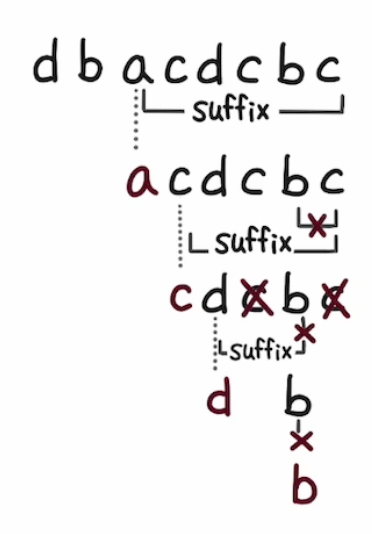 d b a c d c b c
suffix
a c d c b c
x
suffix
c d c b c
x
suffix
d b
x
b